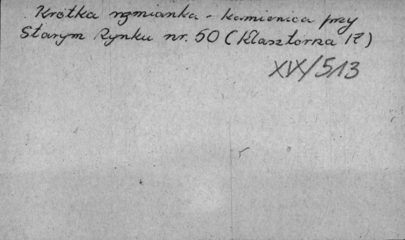 Krótka wzmianka - kamienica przy
Starym Rynku nr. 50 (Klasztorna 17)
XV/513